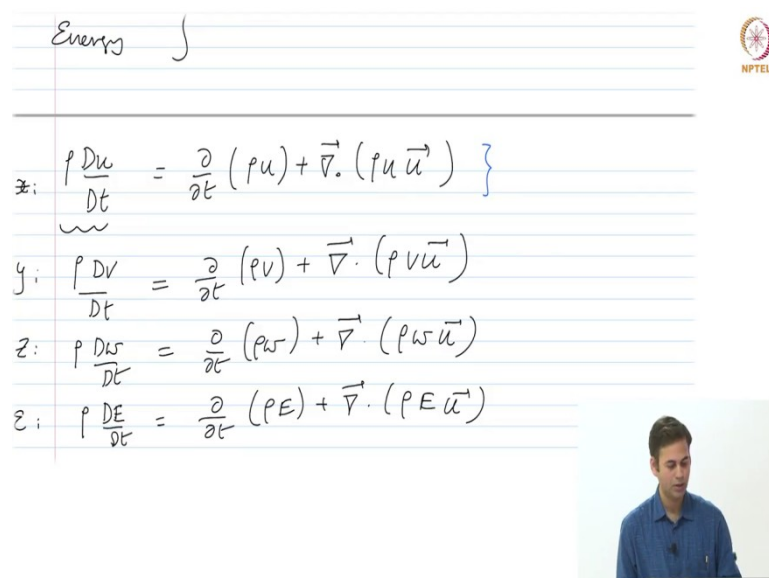 Energy ∫
NPTEL
x: ρ Du/Dt = ∂/∂t (ρu) + ∇⃗. (ρu u⃗) }
y: ρ Dv/Dt = ∂/∂t (ρv) + ∇⃗. (ρv u⃗)
z: ρ Dw/Dt = ∂/∂t (ρw) + ∇⃗. (ρw u⃗)
E: ρ DE/Dt = ∂/∂t (ρE) + ∇⃗. (ρE u⃗)